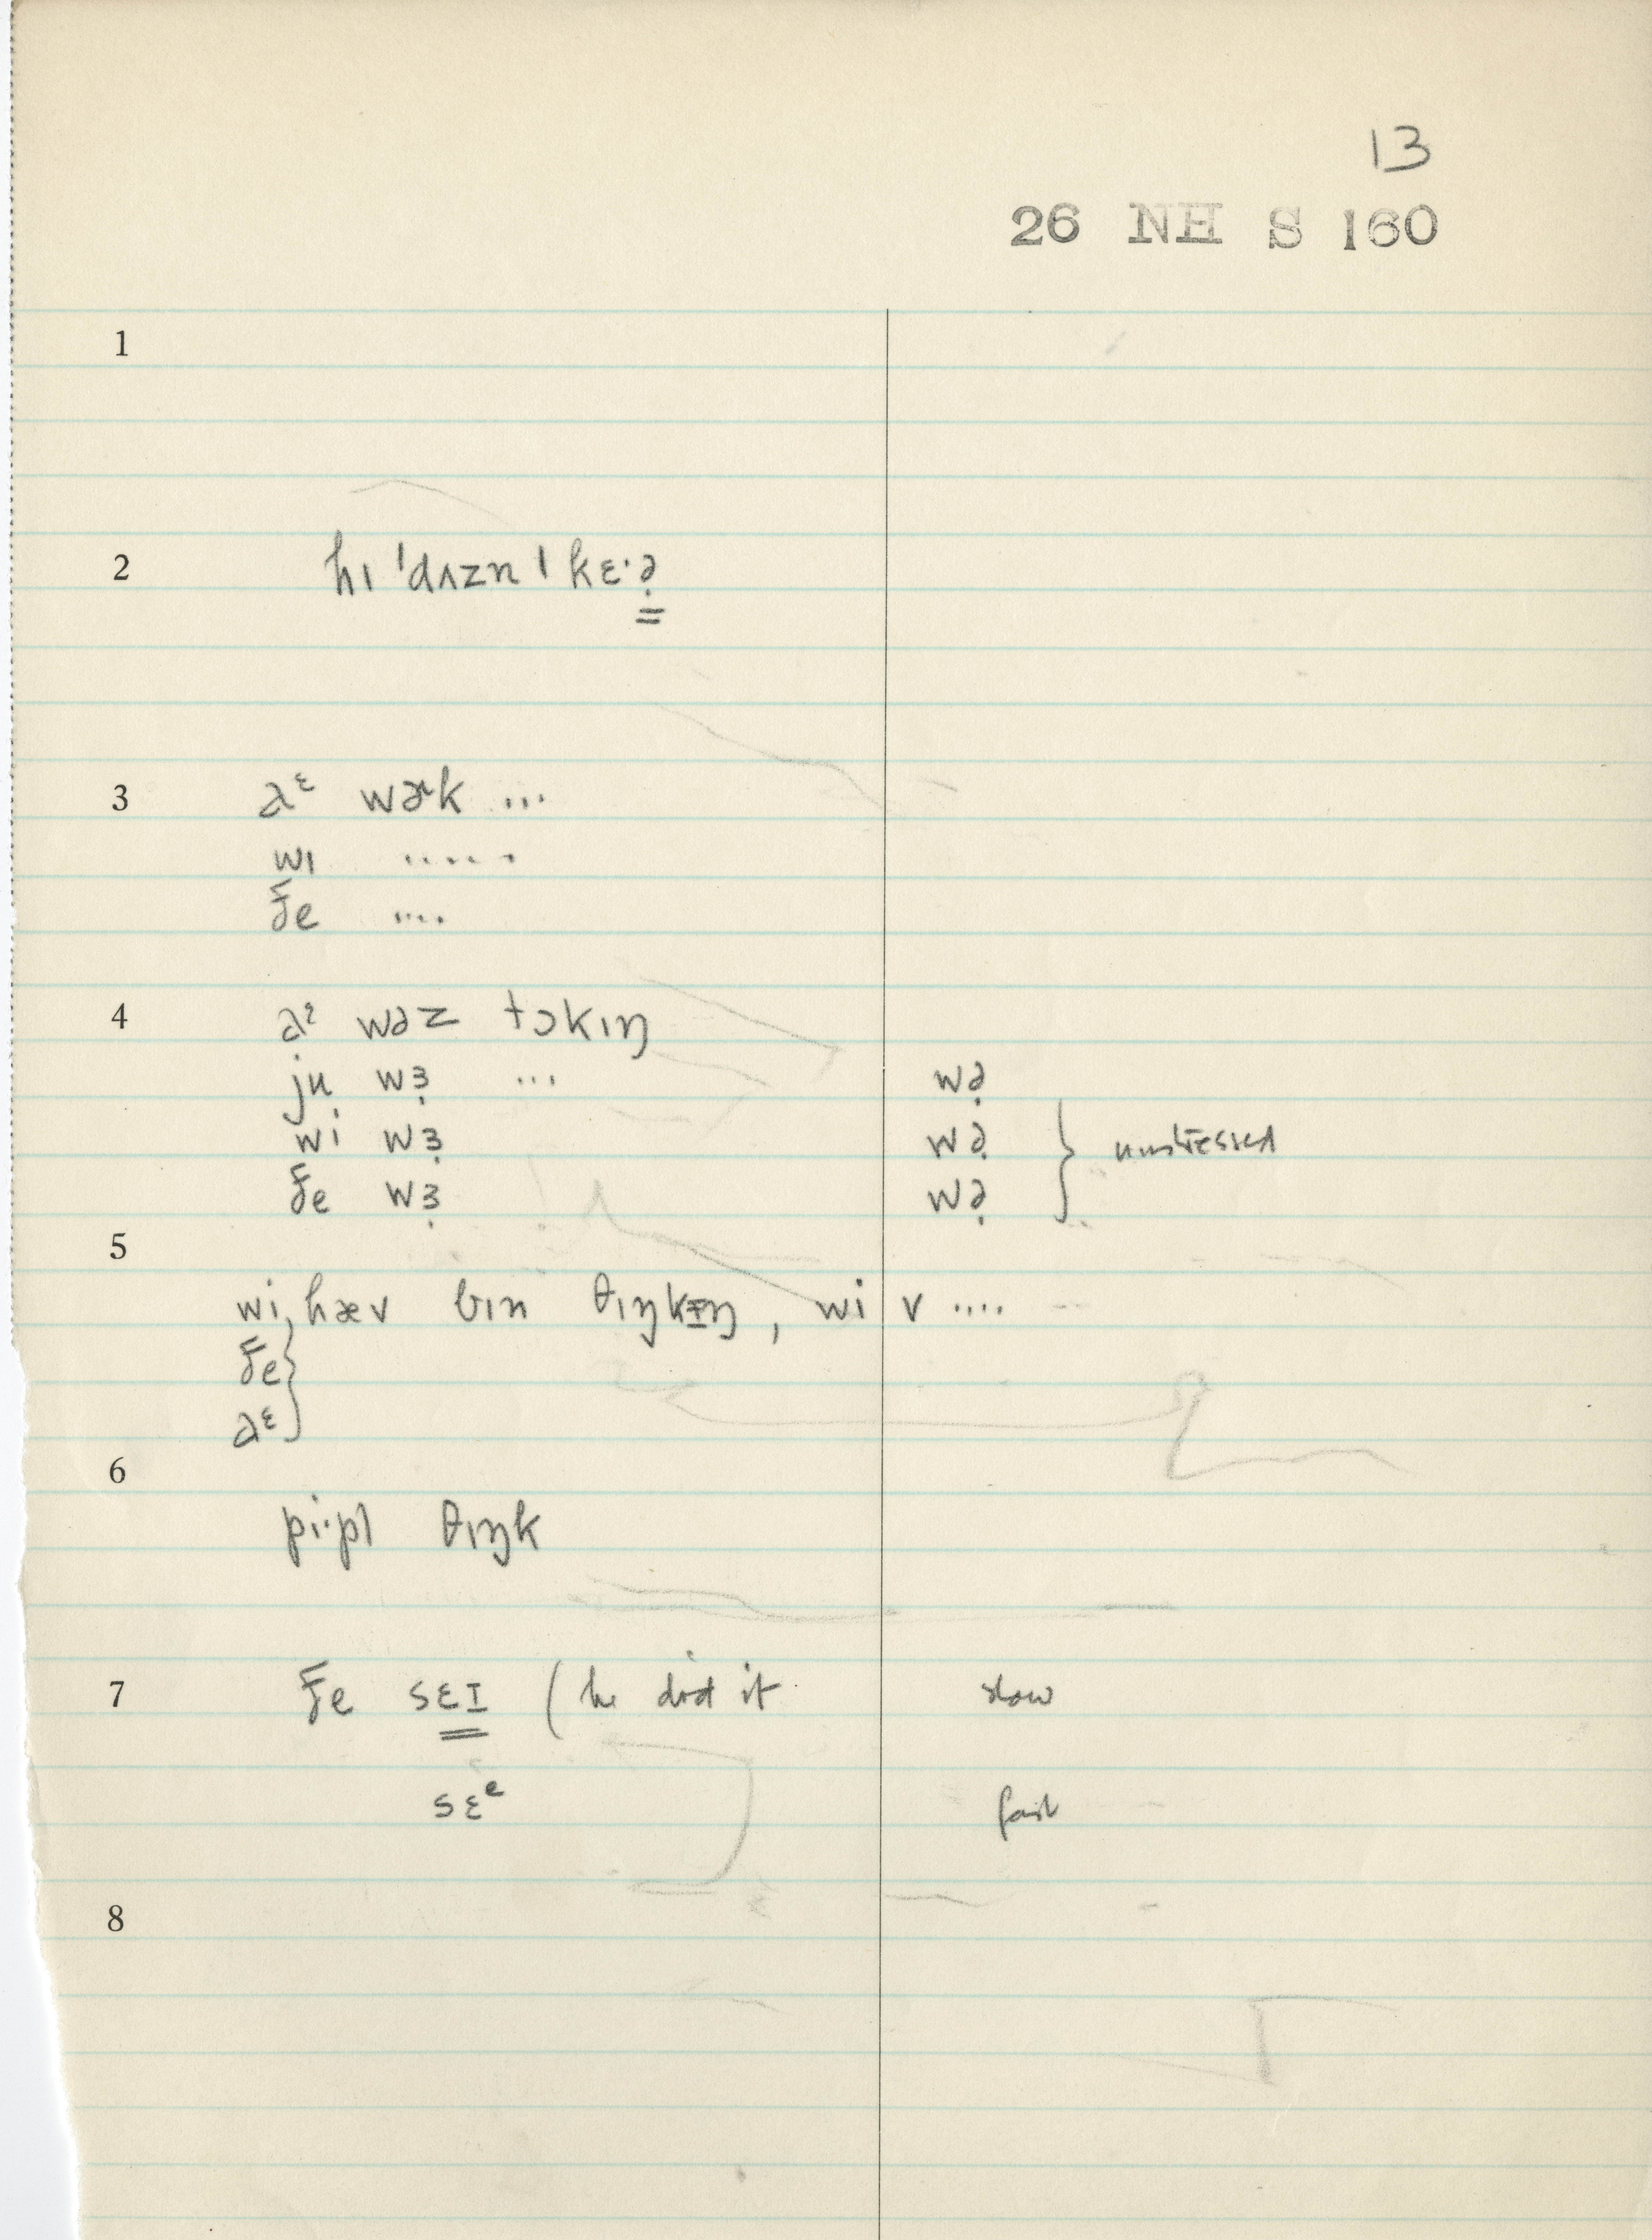 13
26 NH S 160
1
2 hɪ ˈdʌzn ˈkɛ·ə̣
3 aᵋ wɚk ...
wɪ .....
ðe ....
4 aᵋ wəz tɔkɪŋ
ju wɜ̣ ... wə̣
wi wɜ̣ wə̣ } unstressed
ðe wɜ̣ wə̣
5
wi, hæv bɪn θɪŋkɪŋ, wi v ....
ðe
aᵋ }
6
pi·pl θɪŋk
7 ðe sɛɪ (he did it slow
sɛᵉ fast
8